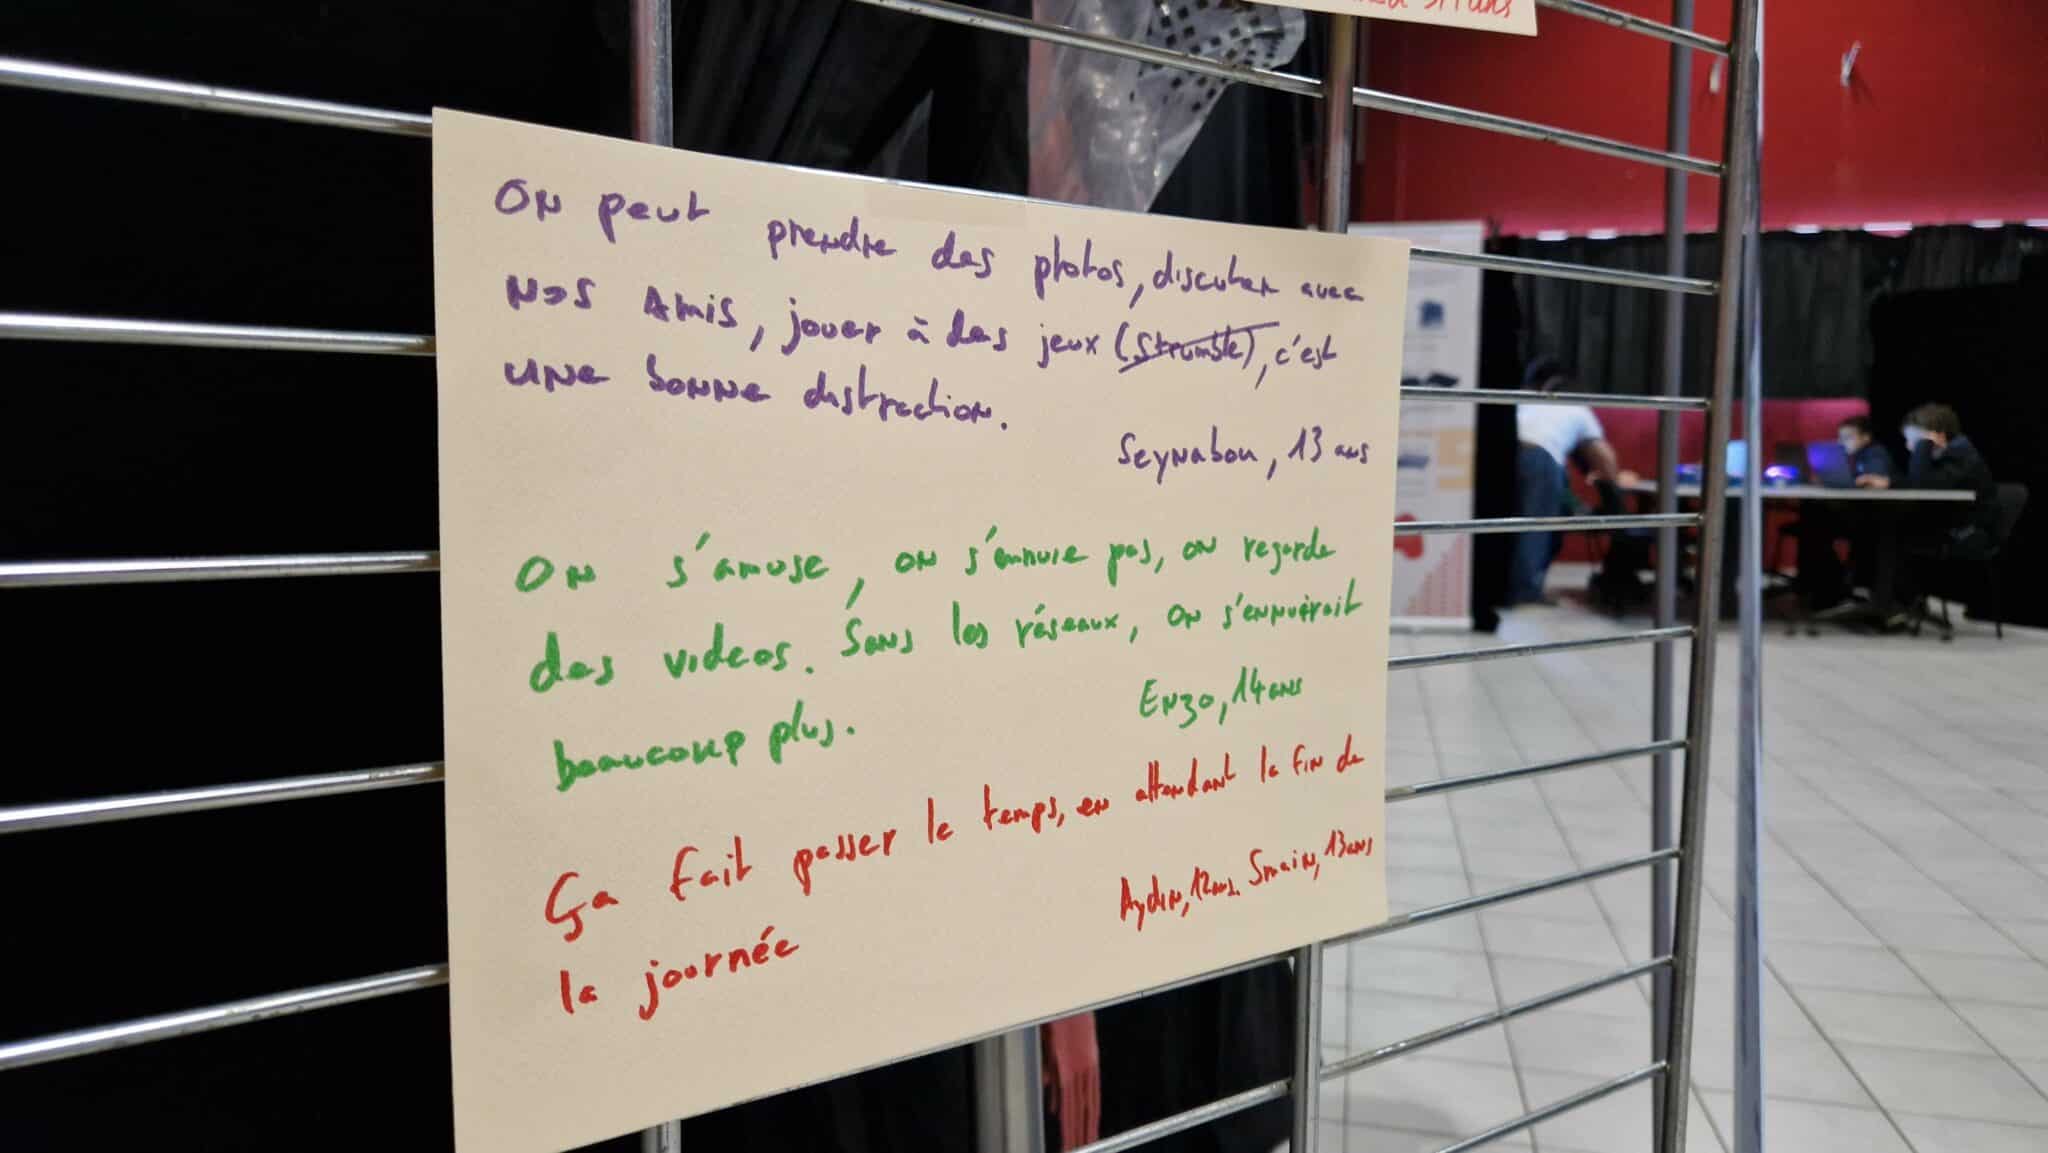 On peut prendre des photos, discuter avec
nos amis, jouer à des jeux (Strumble), c'est
une bonne distraction.
Seynabou, 13 ans
On s'amuse, on s'ennuie pas, on regarde
des videos. Sans les réseaux, on s'ennuierait
beaucoup plus.
Enzo, 14 ans
Ça fait passer le temps, en attendant la fin de
la journée
Aydin, 12 ans. Smain, 13 ans